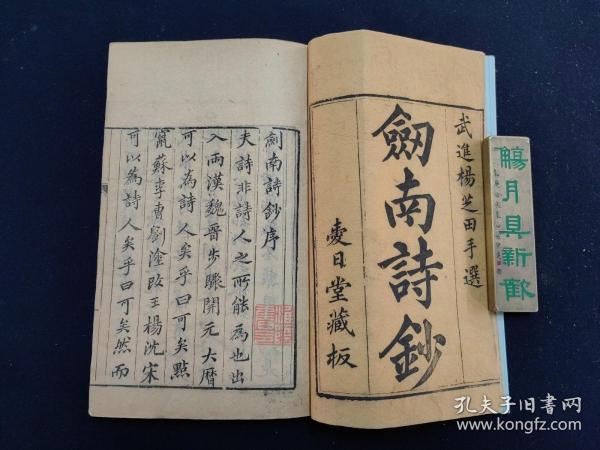 武進楊芝田手選
劒南詩鈔
愛日堂藏板
劍南詩鈔序
夫詩非詩人之所能為也出
入兩漢魏晉步驟開元大曆
可以為詩人矣乎曰可矣點
竄蘇李曹劉塗改王楊沈宋
可以為詩人矣乎曰可矣然而
月具新
孔夫子旧书网
www.kongfz.com